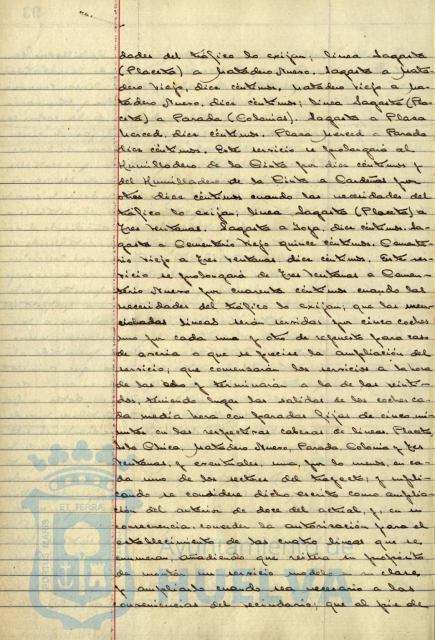 dades del tráfico lo exijan; línea Sagasta
(Placeta) a Matadero Nuevo. Sagasta a Mata
dero Viejo, diez céntimos, Matadero Viejo a Ma
tadero Nuevo, diez céntimos; línea Sagasta (Pla
ceta) a Parada (Colonias). Sagasta a Plaza
Merced, diez céntimos. Plaza Merced a Parada
diez céntimos. Este servicio se prolongará al
Humilladero de la Cinta por diez céntimos y
del Humilladero de la Cinta a Cardeñas por
otros diez céntimos cuando las necesidades del
tráfico lo exijan; línea Sagasta (Placeta) a
Tres Ventanas. Sagasta a diez céntimos. Sa
gasta a Cementerio Viejo quince céntimos. Cemente
rio Viejo a Tres Ventanas diez céntimos. Este ser
vicio se prolongará de Tres Ventanas a Cemen
terio Nuevo por cuarenta céntimos cuando las
necesidades del tráfico lo exijan; que las men
cionadas líneas serán servidas por cinco coches
uno por cada una y otro de repuesto para caso
de avería o que se precise la ampliación del
servicio; que comenzarán los servicios a la hora
de las ocho y terminarán a la de las veinti
dós, teniendo lugar las salidas de los coches ca
da media hora con paradas fijas de cinco mi
nutos en las respectivas cabezas de líneas, Placeta,
Isla Chica, Matadero Nuevo, Parada Colonia y Tres
Ventanas, y eventuales, una, por lo menos, en ca
da uno de los sectores del trayecto; y supli
cando se considere dicho escrito como amplia
ción del anterior de doce del actual, y, en su
consecuencia, conceder la autorización para el
establecimiento de las cuatro líneas que se
enumeran, añadiendo que reitera su propósito
de montar un servicio modelo en su clase,
y ampliarlo cuando sea necesario a las
conveniencias del vecindario; que al pie de
PORTUS MARIS
ET TERRAE
Ayuntamiento de
HUELVA